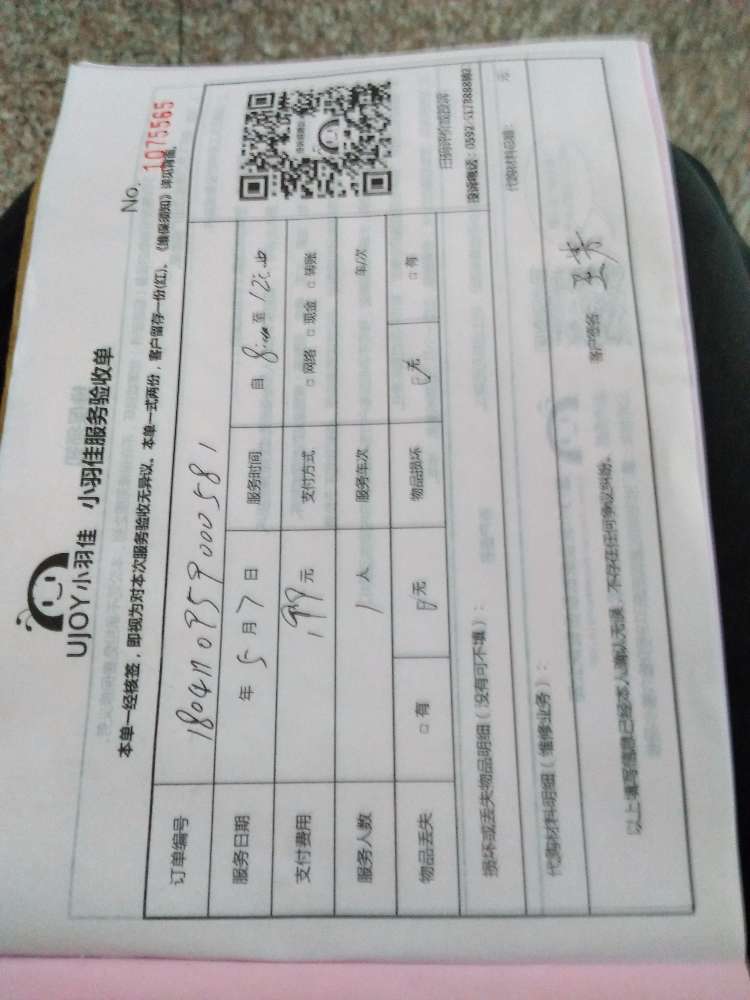 UJOY小羽佳 小羽佳服务验收单
No. 1075565
本单一经核签，即视为对本次服务验收无异议。本单一式两份，客户留存一份(红)。《维保须知》详见背面。
订单编号 1804110959000581
服务日期 年 5 月 7 日 服务时间 自 8:00 至 12:00
支付费用 199 元 支付方式 □ 网络 □ 现金 □ 转账
服务人数 1 人 服务车次 车/次
物品丢失 □ 有 □ 无 物品损坏 □ 无 □ 有
扫码评价或投诉
投诉电话：0592-5178888转2
损坏或丢失物品明细（没有可不填）：
代购材料明细（维修业务）： 代购材料总额： 元
以上填写信息已经本人确认无误，不存在任何争议纠纷。
客户签名：